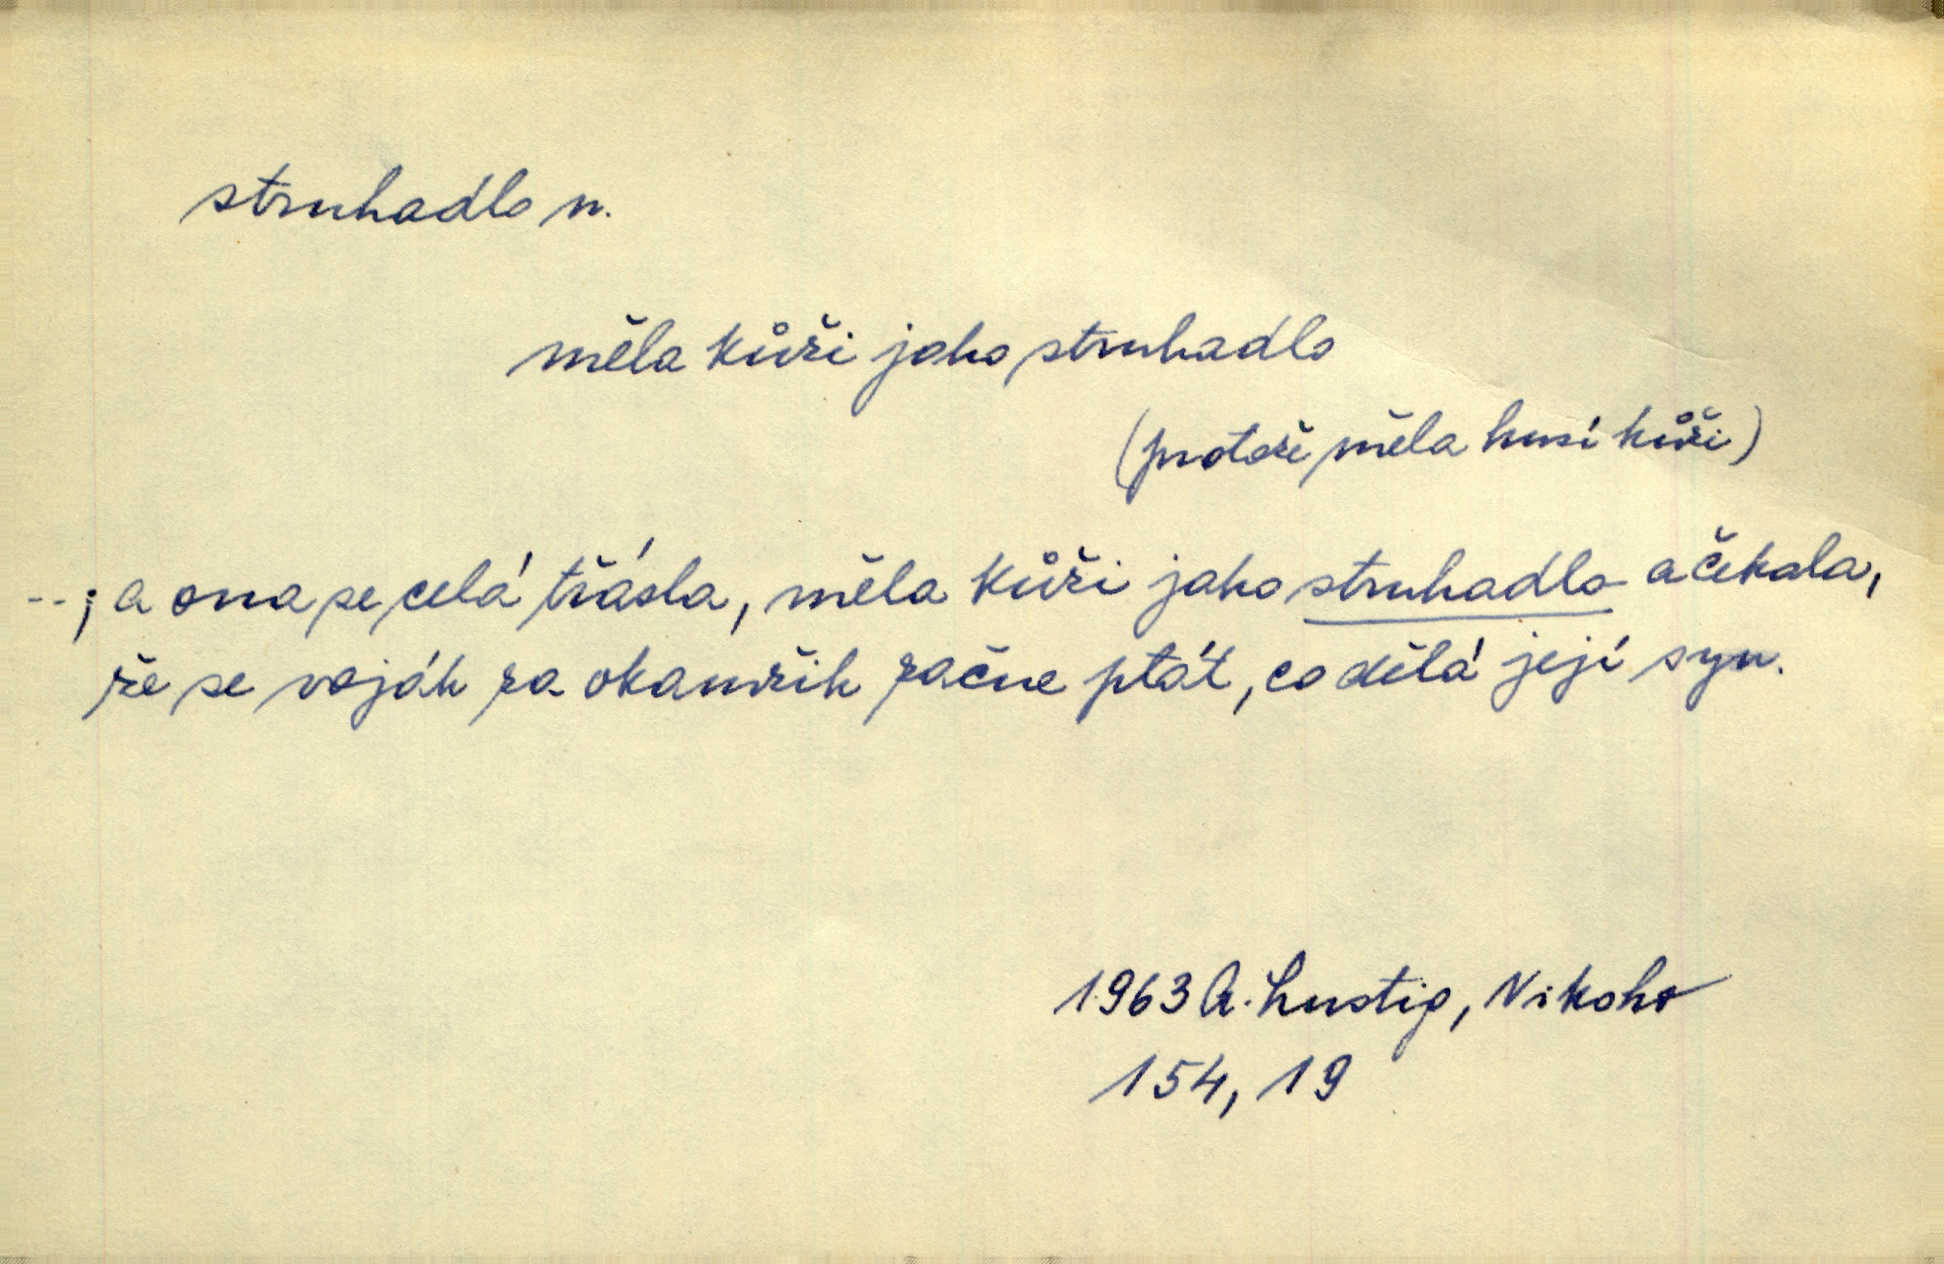 struhadlo n.
měla kůži jako struhadlo
(protože měla husí kůži)
--; a ona se celá třásla, měla kůži jako struhadlo a čekala,
že se voják za okamžik začne ptát, co dělá její syn.
1963 A. Lustig, Nikoho
154, 19